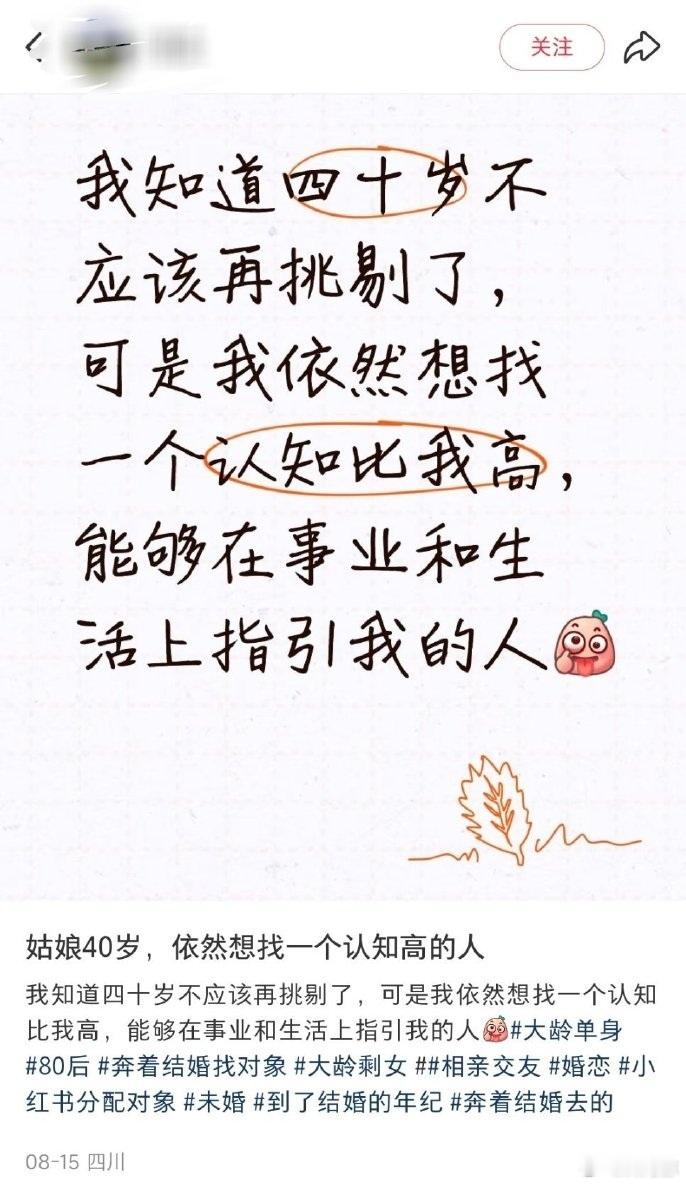 关注
我知道四十岁不
应该再挑剔了，
可是我依然想找
一个认知比我高，
能够在事业和生
活上指引我的人
姑娘40岁，依然想找一个认知高的人
我知道四十岁不应该再挑剔了，可是我依然想找一个认知
比我高，能够在事业和生活上指引我的人#大龄单身
#80后 #奔着结婚找对象 #大龄剩女 ##相亲交友 #婚恋 #小
红书分配对象 #未婚 #到了结婚的年纪 #奔着结婚去的
08-15 四川